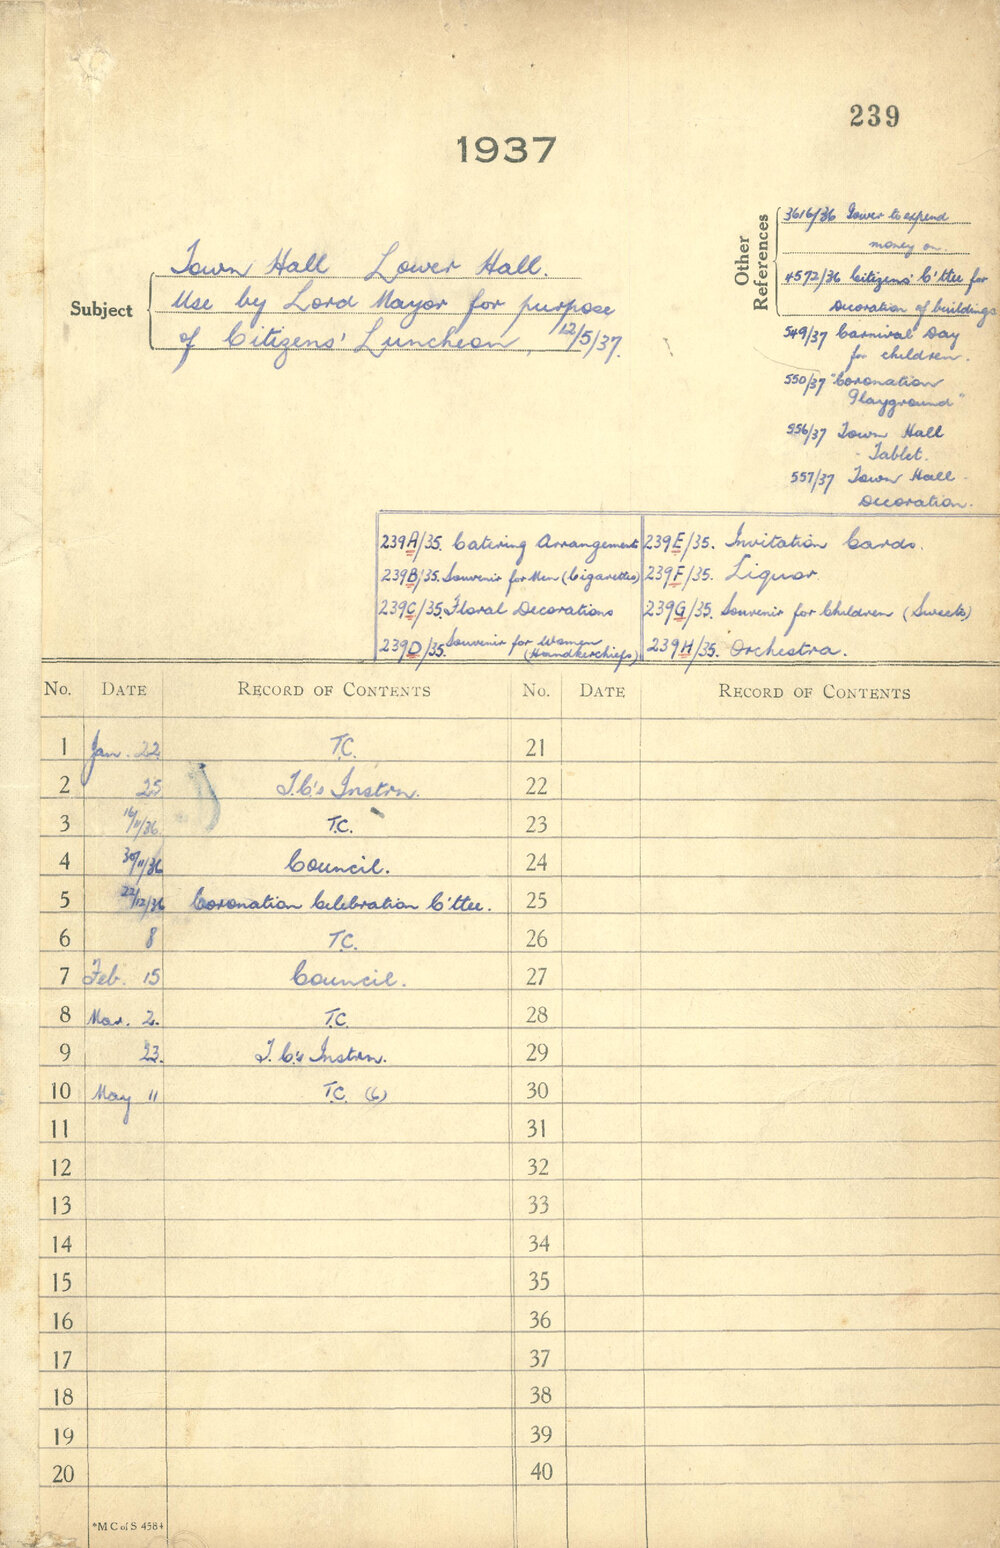 239
1937
Other References
3616/36 Power to expend
money on.
4572/36 Citizens' C'ttee for
Decoration of buildings
549/37 Carnival Day
for children.
550/37 "Coronation
Playground"
556/37 Town Hall
Tablet.
557/37 Town Hall
Decoration.
Subject
Town Hall Lower Hall.
Use by Lord Mayor for purpose
of Citizens' Luncheon, 12/5/37.
239A/35. Catering Arrangements 239E/35. Invitation Cards.
239B/35. Souvenir for Men (Cigarettes) 239F/35. Liquor.
239C/35. Floral Decorations 239G/35. Souvenir for Children (Sweets)
239D/35. Souvenir for Women (Handkerchiefs) 239H/35. Orchestra.
No. DATE RECORD OF CONTENTS No. DATE RECORD OF CONTENTS
1 Jan. 22 T.C. 21
2 25 T.C's Instrn. 22
3 16/11/36 T.C. 23
4 30/11/36 Council. 24
5 22/12/36 Coronation Celebration C'ttee. 25
6 8 T.C. 26
7 Feb. 15 Council. 27
8 Mar. 2. T.C. 28
9 23. T.C's Instrn. 29
10 May 11 T.C. (6) 30
11 31
12 32
13 33
14 34
15 35
16 36
17 37
18 38
19 39
20 40
*M C of S 4584